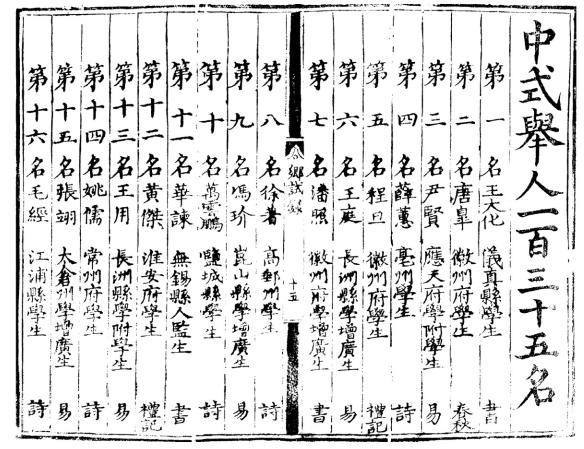 中式舉人一百三十五名
第一名王大化 儀真縣學生 書
第二名唐臯 徽州府學生 春秋
第三名尹賢 應天府學附學生 易
第四名薛蕙 亳州學生 詩
第五名程旦 徽州府學生 禮記
第六名王庭 長洲縣學增廣生 易
第七名潘照 徽州府學增廣生 書
鄉試錄
十五
第八名徐蓍 高郵州學生 詩
第九名馮玠 崑山縣學增廣生 易
第十名萬雲鵬 鹽城縣學生 詩
第十一名華諫 無錫縣人監生 書
第十二名黃傑 淮安府學生 禮記
第十三名王用 長洲縣學附學生 易
第十四名姚儒 常州府學生 詩
第十五名張翊 太倉州學增廣生 易
第十六名毛經 江浦縣學生 詩